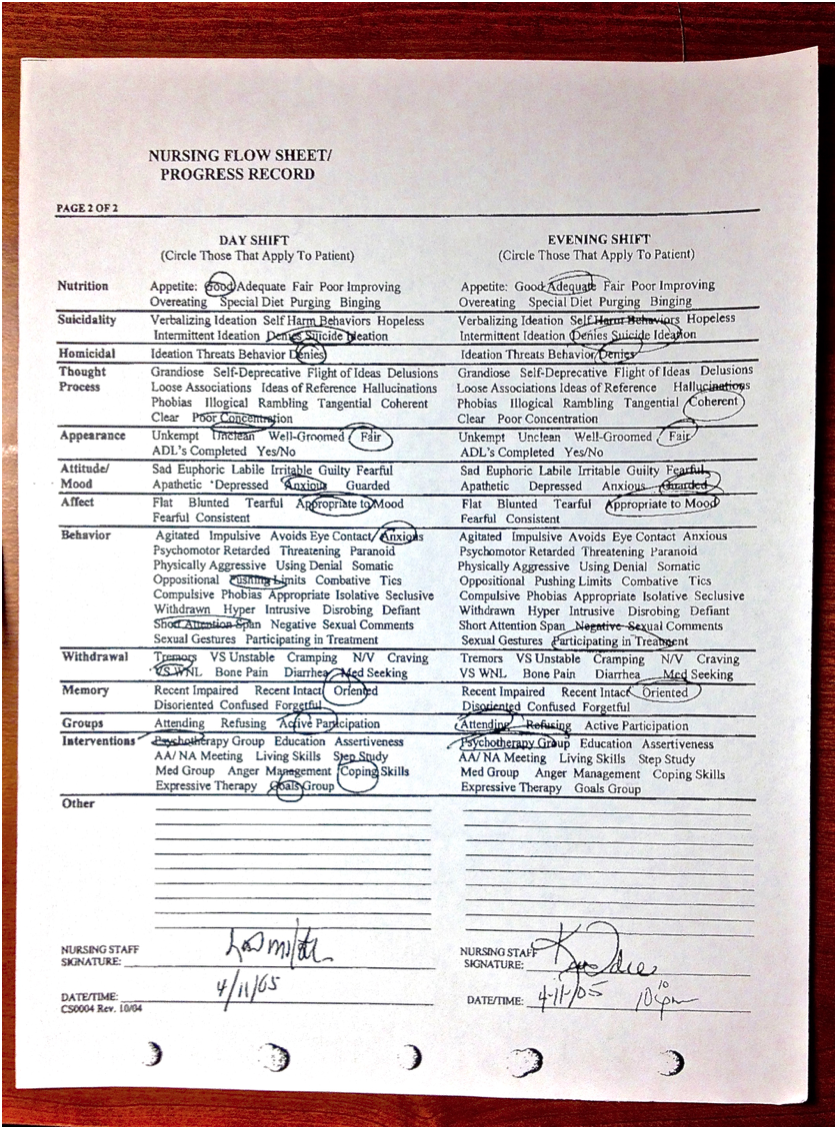 NURSING FLOW SHEET/
PROGRESS RECORD
PAGE 2 OF 2
DAY SHIFT
(Circle Those That Apply To Patient)
EVENING SHIFT
(Circle Those That Apply To Patient)
Nutrition Appetite: Good Adequate Fair Poor Improving Appetite: Good Adequate Fair Poor Improving
Overeating Special Diet Purging Binging Overeating Special Diet Purging Binging
Suicidality Verbalizing Ideation Self Harm Behaviors Hopeless Verbalizing Ideation Self Harm Behaviors Hopeless
Intermittent Ideation Denies Suicide Ideation Intermittent Ideation Denies Suicide Ideation
Homicidal Ideation Threats Behavior Denies Ideation Threats Behavior Denies
Thought Grandiose Self-Deprecative Flight of Ideas Delusions Grandiose Self-Deprecative Flight of Ideas Delusions
Process Loose Associations Ideas of Reference Hallucinations Loose Associations Ideas of Reference Hallucinations
Phobias Illogical Rambling Tangential Coherent Phobias Illogical Rambling Tangential Coherent
Clear Poor Concentration Clear Poor Concentration
Appearance Unkempt Unclean Well-Groomed Fair Unkempt Unclean Well-Groomed Fair
ADL's Completed Yes/No ADL's Completed Yes/No
Attitude/ Sad Euphoric Labile Irritable Guilty Fearful Sad Euphoric Labile Irritable Guilty Fearful
Mood Apathetic Depressed Anxious Guarded Apathetic Depressed Anxious Guarded
Affect Flat Blunted Tearful Appropriate to Mood Flat Blunted Tearful Appropriate to Mood
Fearful Consistent Fearful Consistent
Behavior Agitated Impulsive Avoids Eye Contact Anxious Agitated Impulsive Avoids Eye Contact Anxious
Psychomotor Retarded Threatening Paranoid Psychomotor Retarded Threatening Paranoid
Physically Aggressive Using Denial Somatic Physically Aggressive Using Denial Somatic
Oppositional Pushing Limits Combative Tics Oppositional Pushing Limits Combative Tics
Compulsive Phobias Appropriate Isolative Seclusive Compulsive Phobias Appropriate Isolative Seclusive
Withdrawn Hyper Intrusive Disrobing Defiant Withdrawn Hyper Intrusive Disrobing Defiant
Short Attention Span Negative Sexual Comments Short Attention Span Negative Sexual Comments
Sexual Gestures Participating in Treatment Sexual Gestures Participating in Treatment
Withdrawal Tremors VS Unstable Cramping N/V Craving Tremors VS Unstable Cramping N/V Craving
VS WNL Bone Pain Diarrhea Med Seeking VS WNL Bone Pain Diarrhea Med Seeking
Memory Recent Impaired Recent Intact Oriented Recent Impaired Recent Intact Oriented
Disoriented Confused Forgetful Disoriented Confused Forgetful
Groups Attending Refusing Active Participation Attending Refusing Active Participation
Interventions Psychotherapy Group Education Assertiveness Psychotherapy Group Education Assertiveness
AA/ NA Meeting Living Skills Step Study AA/ NA Meeting Living Skills Step Study
Med Group Anger Management Coping Skills Med Group Anger Management Coping Skills
Expressive Therapy Goals Group Expressive Therapy Goals Group
Other
NURSING STAFF
SIGNATURE:
NURSING STAFF
SIGNATURE:
DATE/TIME: 4/11/05
DATE/TIME: 4-11-05
CS0004 Rev. 10/04